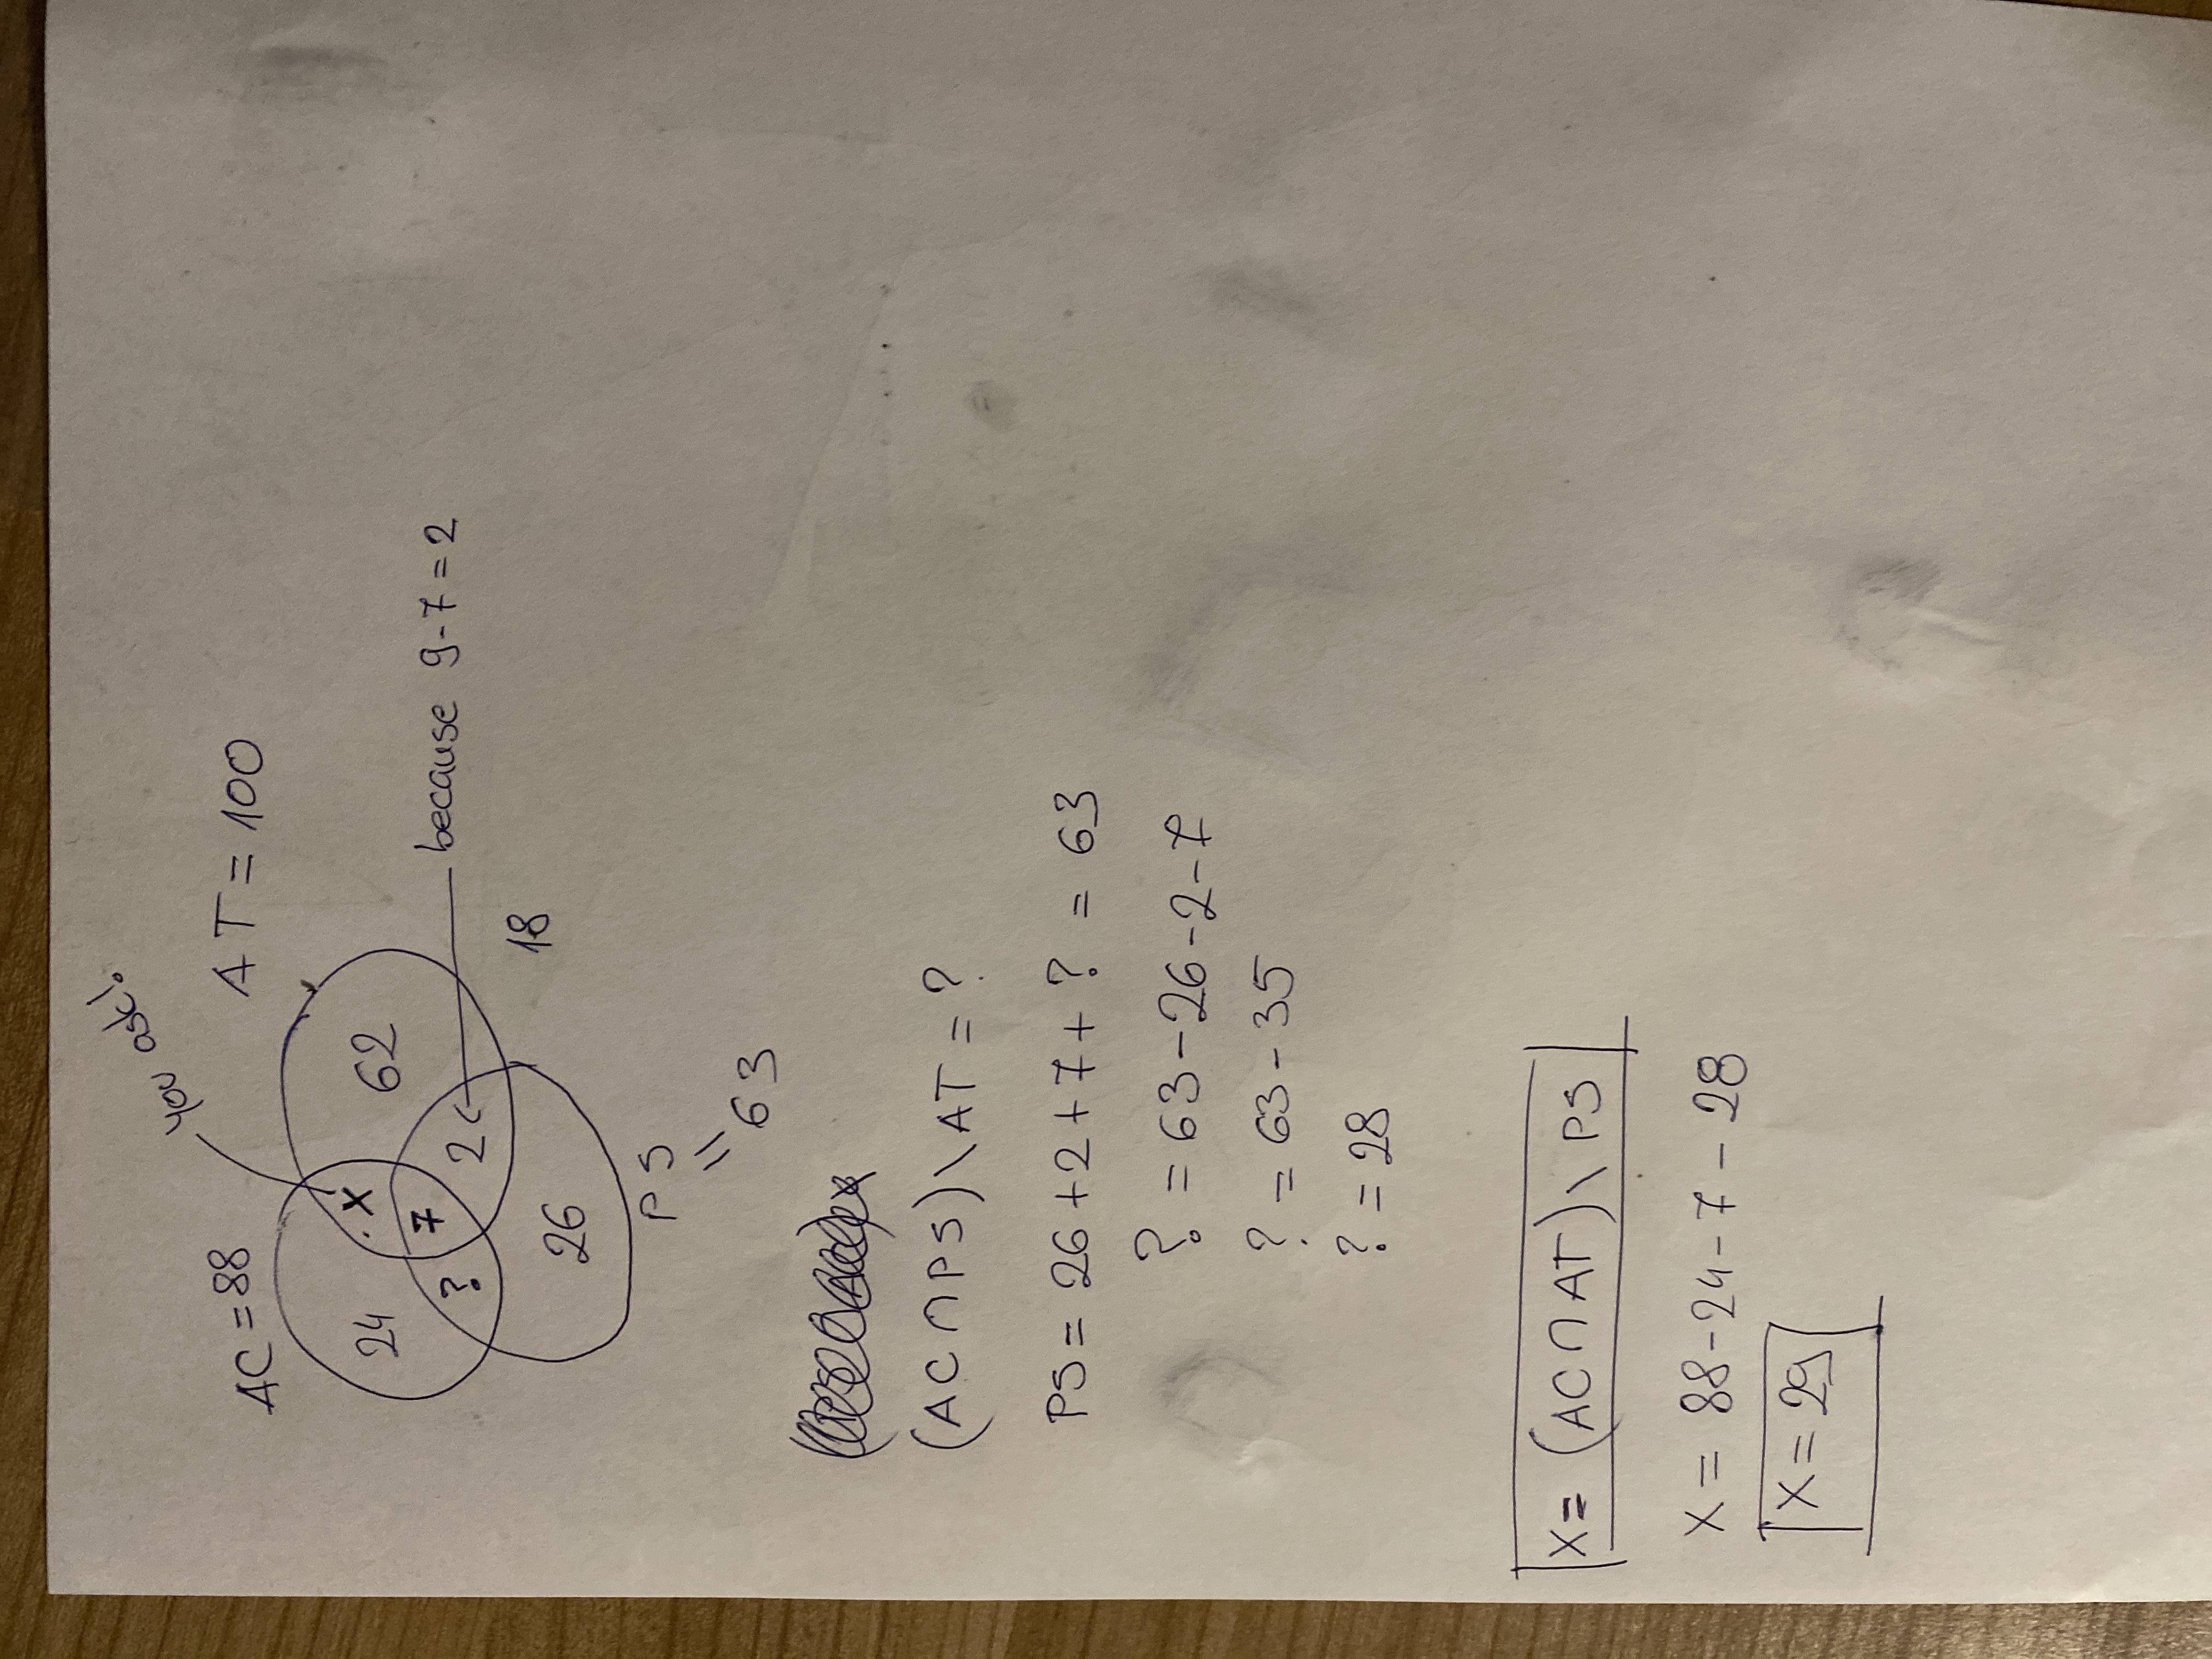 you ask!
AC = 88
AT = 100
24
X
62
?
7
2
because 9-7=2
26
18
PS
=
63
(AC ∩ PS) \ AT = ?
PS = 26 + 2 + 7 + ? = 63
? = 63 - 26 - 2 - 7
? = 63 - 35
? = 28
X = (AC ∩ AT) \ PS
X = 88 - 24 - 7 - 28
X = 29